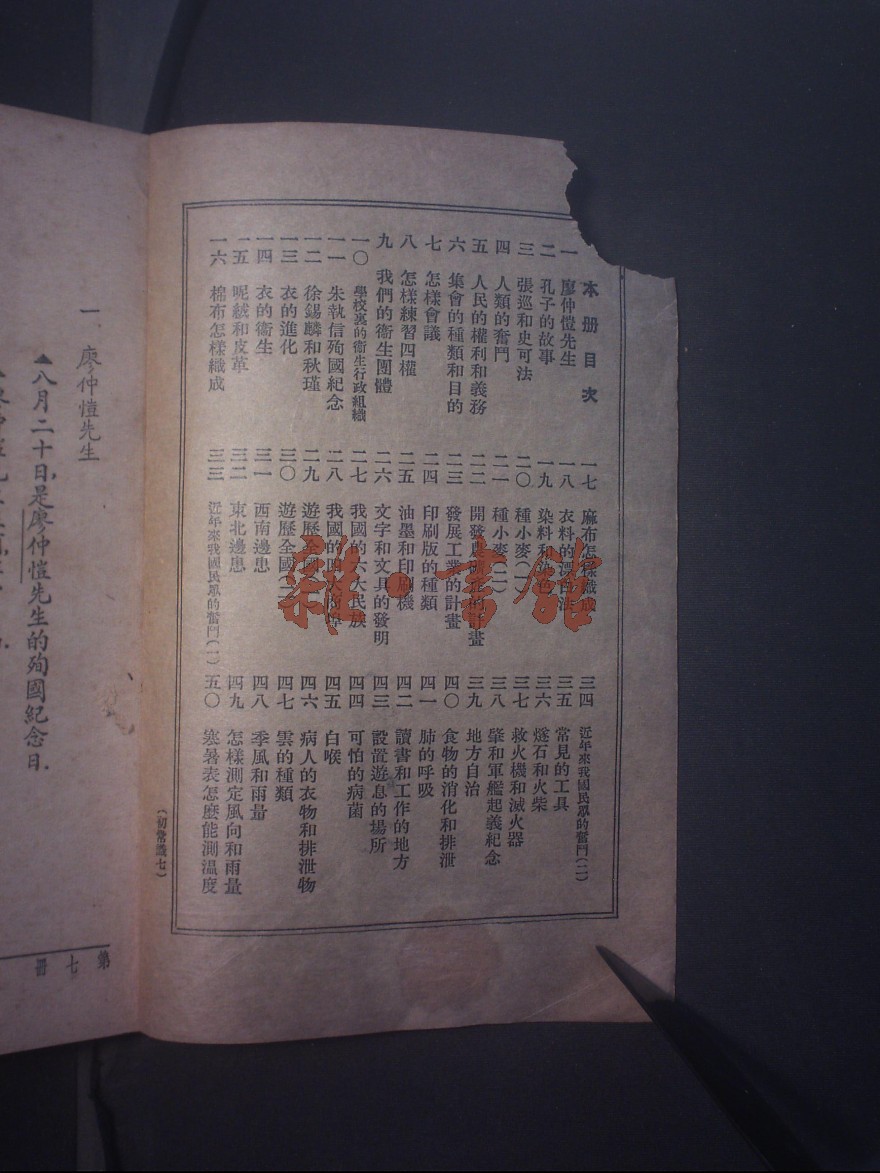 本册目次
一 廖仲愷先生
二 孔子的故事
三 張巡和史可法
四 人類的奮鬥
五 人民的權利和義務
六 集會的種類和目的
七 怎樣會議
八 怎樣練習四權
九 我們的衞生團體
一〇 學校裏的衞生行政組織
一一 朱執信殉國紀念
一二 徐錫麟和秋瑾
一三 衣的進化
一四 衣的衞生
一五 呢絨和皮革
一六 棉布怎樣織成
一七 麻布怎樣織成
一八 衣料的漂白法
一九 染料和染色
二〇 種小麥(一)
二一 種小麥(二)
二二 開發農礦的計畫
二三 發展工業的計畫
二四 印刷版的種類
二五 油墨和印刷機
二六 文字和文具的發明
二七 我國的六大民族
二八 我國的四大商埠
二九 遊歷全國(一)
三〇 遊歷全國(二)
三一 西南邊患
三二 東北邊患
三三 近年來我國民眾的奮鬥(一)
三四 近年來我國民眾的奮鬥(二)
三五 常見的工具
三六 燧石和火柴
三七 救火機和滅火器
三八 肇和軍艦起義紀念
三九 地方自治
四〇 食物的消化和排泄
四一 肺的呼吸
四二 讀書和工作的地方
四三 設置遊息的場所
四四 可怕的病菌
四五 白喉
四六 病人的衣物和排泄物
四七 雲的種類
四八 季風和雨量
四九 怎樣測定風向和雨量
五〇 寒暑表怎麼能測溫度
(初常識七)
雜·書館
一、廖仲愷先生
▲八月二十日,是廖仲愷先生的殉國紀念日.
第七冊